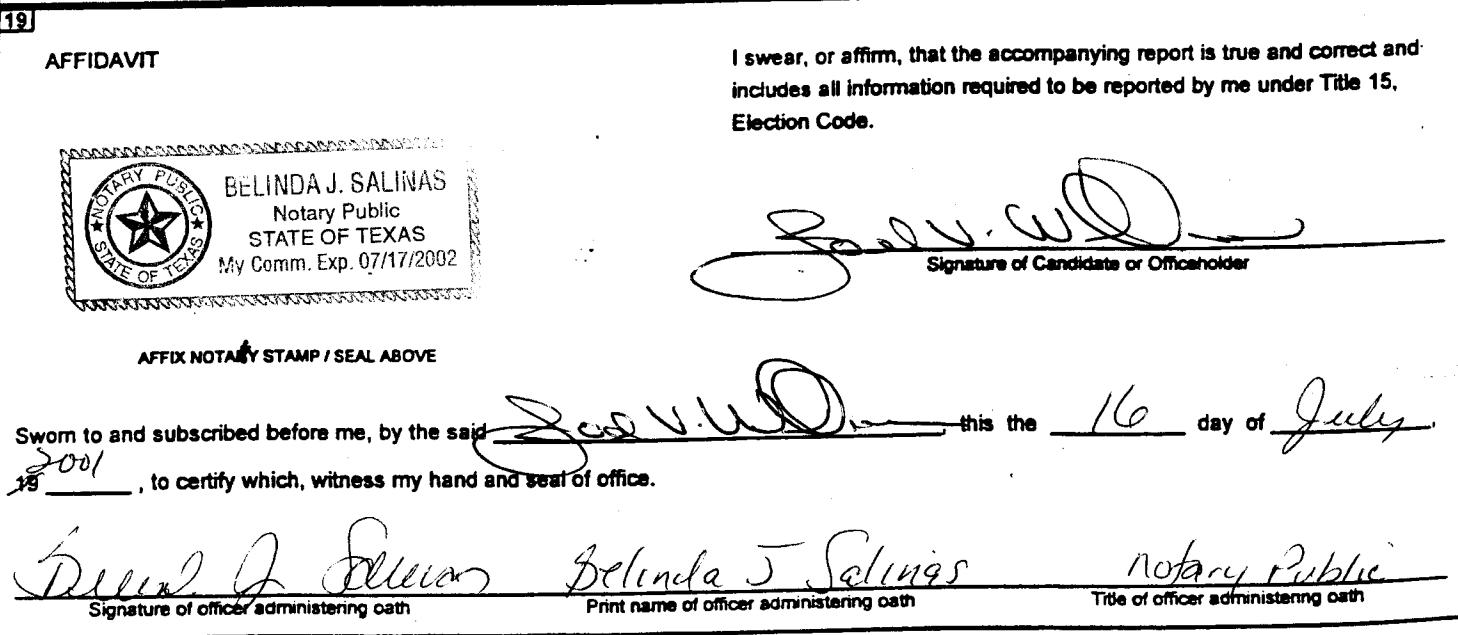 19
AFFIDAVIT
I swear, or affirm, that the accompanying report is true and correct and
includes all information required to be reported by me under Title 15,
Election Code.
NOTARY PUBLIC
STATE OF TEXAS
BELINDA J. SALINAS
Notary Public
STATE OF TEXAS
My Comm. Exp. 07/17/2002
Signature of Candidate or Officeholder
AFFIX NOTARY STAMP / SEAL ABOVE
Sworn to and subscribed before me, by the said V. this the 16 day of July,
19 2001, to certify which, witness my hand and seal of office.
Belinda J Salinas notary Public
Signature of officer administering oath Print name of officer administering oath Title of officer administering oath